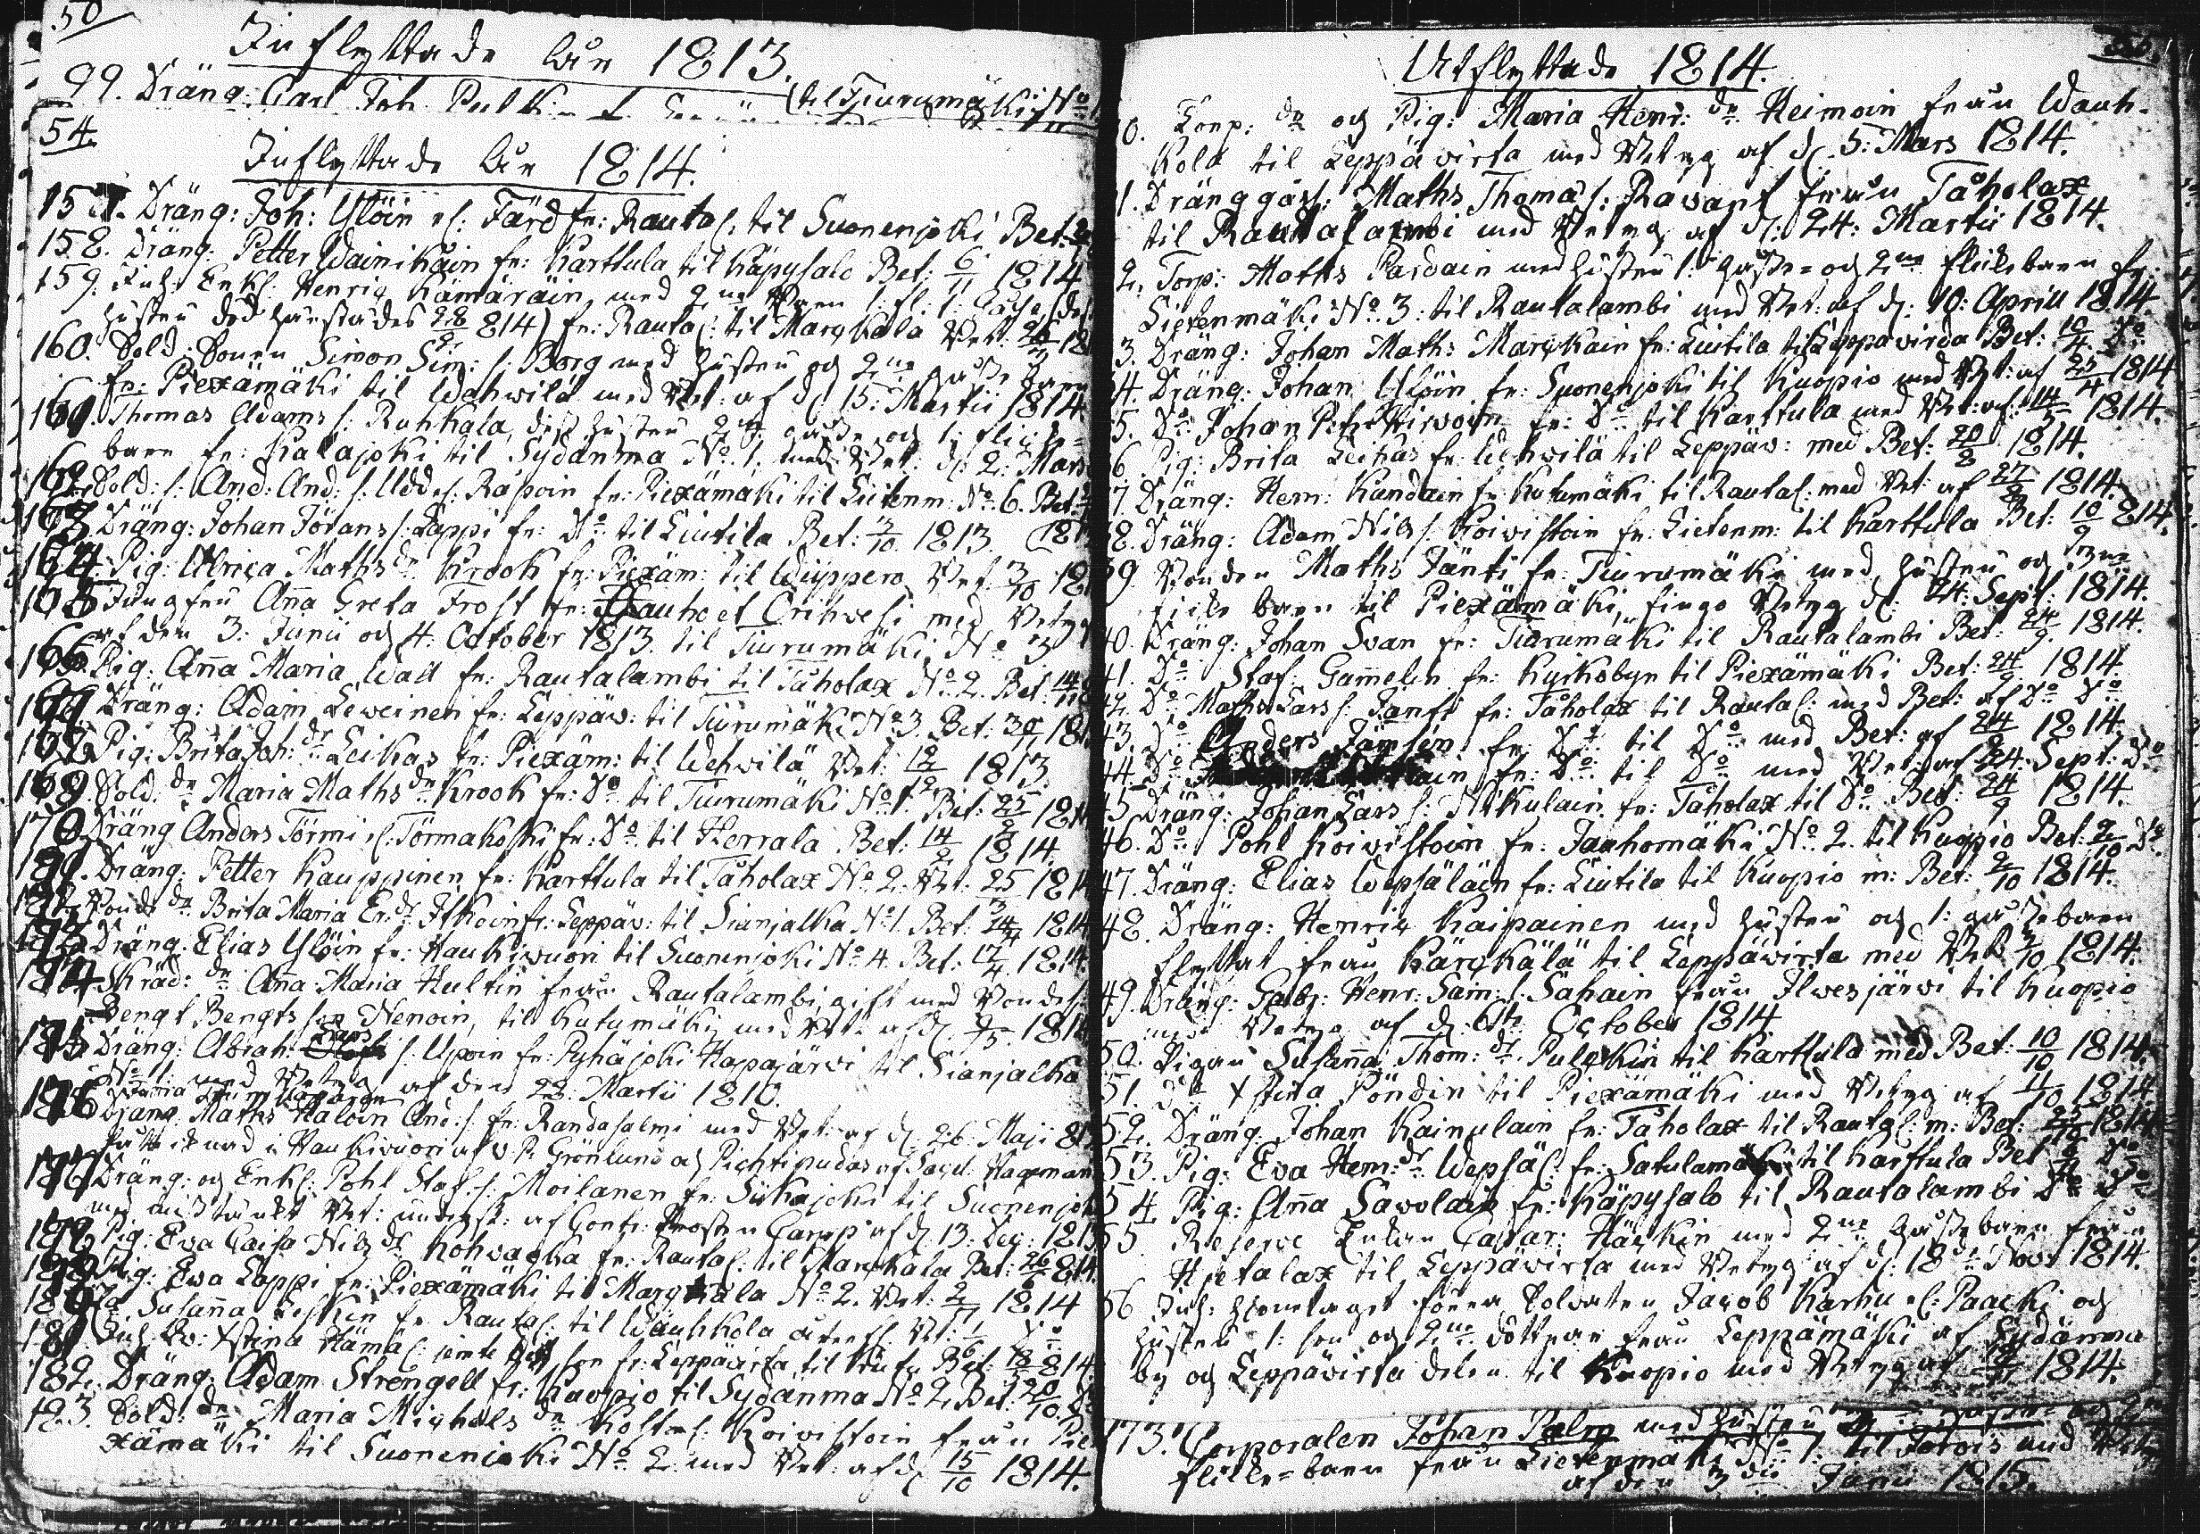 50
Inflyttade År 1813.
99. Dräng: Carl Joh: Pulkin (til Tiurumäki No
54.
Inflyttade År 1814.
157. Dräng: Joh: Ylöin el: Färd fr: Rautal: til Suonenjoki Bet:
158. Dräng: Petter Wainikain fr: Karttula til Käpysalo Bet: 6/11 1814
159. Inh: Enkl: Henric Hämäräin, med 2ne 1: fl: 1: Gåsse,
hustru död 28 814) fr: Rautal: til Marckala Bet: 26
160. Sold: Sonen Simon Sim: s: Borg med hustru och 2ne gåsse barn
fr: Piexämäki til Wehwilä med Bet: af d: 15: Martii 1814.
161. Thomas Adams s: Ruhkala, dess hustru 2ne gåsse och 1: flicke=
barn fr: Kalajoki til Sydänma No 1, med Bet: d: 2: Mars
162. Sold: s: And: And: s: Udd el: Räsoin fr: Piexämäki til Lietenm: No 6. Bet:
163. Dräng: Johan Jörans s: Lappi fr: Do til Liutila Bet: 3/10 1813.
164. Pig: Ulrica Maths dr Krook fr: Piexäm: til Wuippero Bet: 3/10 18
165 Jungfru Anna Greta Frost fr: Jauho et Orihwesi med Betyg
af den 3: Junii och 4: October 1813. til Tiurumäki No 3
166. Pig: Anna Maria Wall fr: Rautalambi til Tåholax No 2. Bet: 14/11
167. Dräng: Adam Leweinen fr: Leppäw: til Tiurumäki No 3. Bet: 30/11 181
168. Pig: Brita Joh: dr Leikas fr: Piexäm: til Wehwilä Bet: 12/12 1813.
169. Sold: dr Maria Maths dr Krook fr: Do til Tiurumäki No 1. Bet: 25/2 181
170. Dräng Anders Törmi el: Törmakoski fr: Do til Herrala Bet: 14/2 1814.
171. Dräng: Petter Kauppinen fr: Karttula til Tåholax No 2. Bet: 25/3 1814
172. Bonde dr Brita Maria Er: dr Itkoin fr: Leppäw: til Sianjalka No 1. Bet: 24/4 1814
173. Dräng: Elias Ylöin fr: Haukiwuori til Suonenjoki No 4. Bet: 17/4 1814.
174 Skräd: dr Anna Maria Hultin från Rautalambi, gift med Bondes:
Bengt Bengts son Nenoin, til Kutumäki med Bet: af d: 9/5 1814
175 Dräng: Abrah: Lars s: Upoin fr: Pyhäjoki Hapajärwi til Sianjalka
med Betyg af den 28: Martii 1810.
176 Dräng Maths Haloin And: s: fr: Randasalmi med Bet: af d: 26: Maji 81
i Haukiwuori af V: P: Grönlund och Pichtipudas af Sacell: Hageman
177 Dräng: och Enkl: Pohl Staf: s: Moilanen fr: Siikajoki til Suonenjok
med Bet: af Contr: Prosten Camp: af d: 13: Dec: 1813
178 Pig: Eva Caisa Nils dr Kohwackka fr: Rautal: til Marckala Bet: 26/6 814.
179 Pig: Eva Lappi fr: Piexämäki til Marckala No 2. Bet: 2/7 1814
180 Do Susanna Leskin fr: Rautal: til Wauhkola Bet: 1/6 Do
181. Inh: Qv: Stina Hämäl: jemte son fr: Leppävirta til Bet: 18/ 814
182. Dräng: Adam Strengell fr: Kuopio til Sydänma No 2. Bet: 20/10
183. Sold: dr Maria Michels dr Koiwistoin från Pie
xämäki til Suonenjoki No 2 med Bet: af d: 15/10 1814.
Utflyttade 1814.
30. Torp: dr och Pig: Maria Henr: dr Heimoin från Wauh=
kola til Leppäwirta med Betyg af d: 5: Mars 1814.
31. Dränggåss: Maths Thoma s: Ravant från Tåholax
til Rautalambi med Betyg af d: 24: Martii 1814.
2. Torp: Maths Pardain med hustru 1: gåsse= och 2ne flicke barn fr:
Lietenmäki No 3: til Rautalambi med Bet: af d: 10: Aprill 1814.
3. Dräng: Johan Maths Marckain fr: Liutila til Leppävirda Bet: 10/4 Do
34. Dräng: Johan Ylöin fr: Suonenjoki til Kuopio med Bet: af 25/4 1814.
35. Do Johan Petr: Hirvoin fr: Do til Karttula med Bet: af: 14/5 1814.
6. Pig: Brita Leikas fr: Wehwilä til Leppäw: med Bet: 20/8 1814.
37. Dräng: Hem: Kandain fr: Kutumäki til Rautal: med Bet: af 27/8 1814.
38. Dräng: Adam Nils s: Koiwistoin fr: Lietenm: til Karttula Bet: 10/9 814.
39 Bonden Maths Jänti fr: Tiurumäki med hustru och
flicke barn til Piexämäki, fingo Betyg d: 24: Sept: 1814.
40. Dräng: Johan Svan fr: Tiurumäki til Rautalambi Bet: 24/9. 1814.
41. Do Staf: Gammelin fr: Kyrkobyn til Piexämäki Bet: 24/9 1814.
42. Do Maths Lars s: Janti fr: Tåholax til Rautal: med Bet: af Do Do
43. Do Anders Jämsén fr: Do til Do med Bet: af 24/9 1814.
44. Do ain fr: Do til Do med Bet: af 24: Sept: Do
45 Dräng: Johan Lars s: Nikulain fr: Tåholax til Do Bet: 24/9 1814.
46. Do Pohl Koiwistoin fr: Jauhomäki No 2. til Kuopio Bet: 2/10 Do
47. Dräng: Elias Wepsäläin fr: Liutila til Kuopio m: Bet: 2/10 1814.
48. Dräng: Henric Kaipainen med hustru och 1: gåssebarn
flyttat från Kärkkälä til Leppäwirta med Bet: /10 1814.
49. Dräng: Gabr: Henr: Sam: s: Sahain från Ilwesjärwi til Kuopio
med Betyg af d: 6te October 1814
50. Pigan Susanna Thom: dr Pulckin til Karttula med Bet: 10/10 1814.
51. Do Stina Pöndin til Piexämäki med Betyg af /10 1814.
52. Dräng Johan Kainulain fr: Tåholax til Rautal: m: Bet: 23/10 1814
53. Pig: Eva Hem: dr Wepsäl: fr: Satulamäki til Karttula Bet Do
54. Pig: Anna Savolain fr: Käpysalo til Rautalambi Do Do
55 Reserve Caspar: Häckin med 2ne gåsse barn från
Hjetalax til Leppävirta med Betyg af d: 18de Nov: 1814.
56 Inh: förra Soldaten Jacob Karhu el: Paacki och
hustru 1: son och 2ne döttrar från Leppämäki af Sydänma
by och Leppävirta delen til Kuopio med Betyg af 1814.
173. Corporalen Johan Palm med hustru
flicke=barn från Lietenmäki No 1. til Jorois med Betyg
af den 3die Junii 1815.